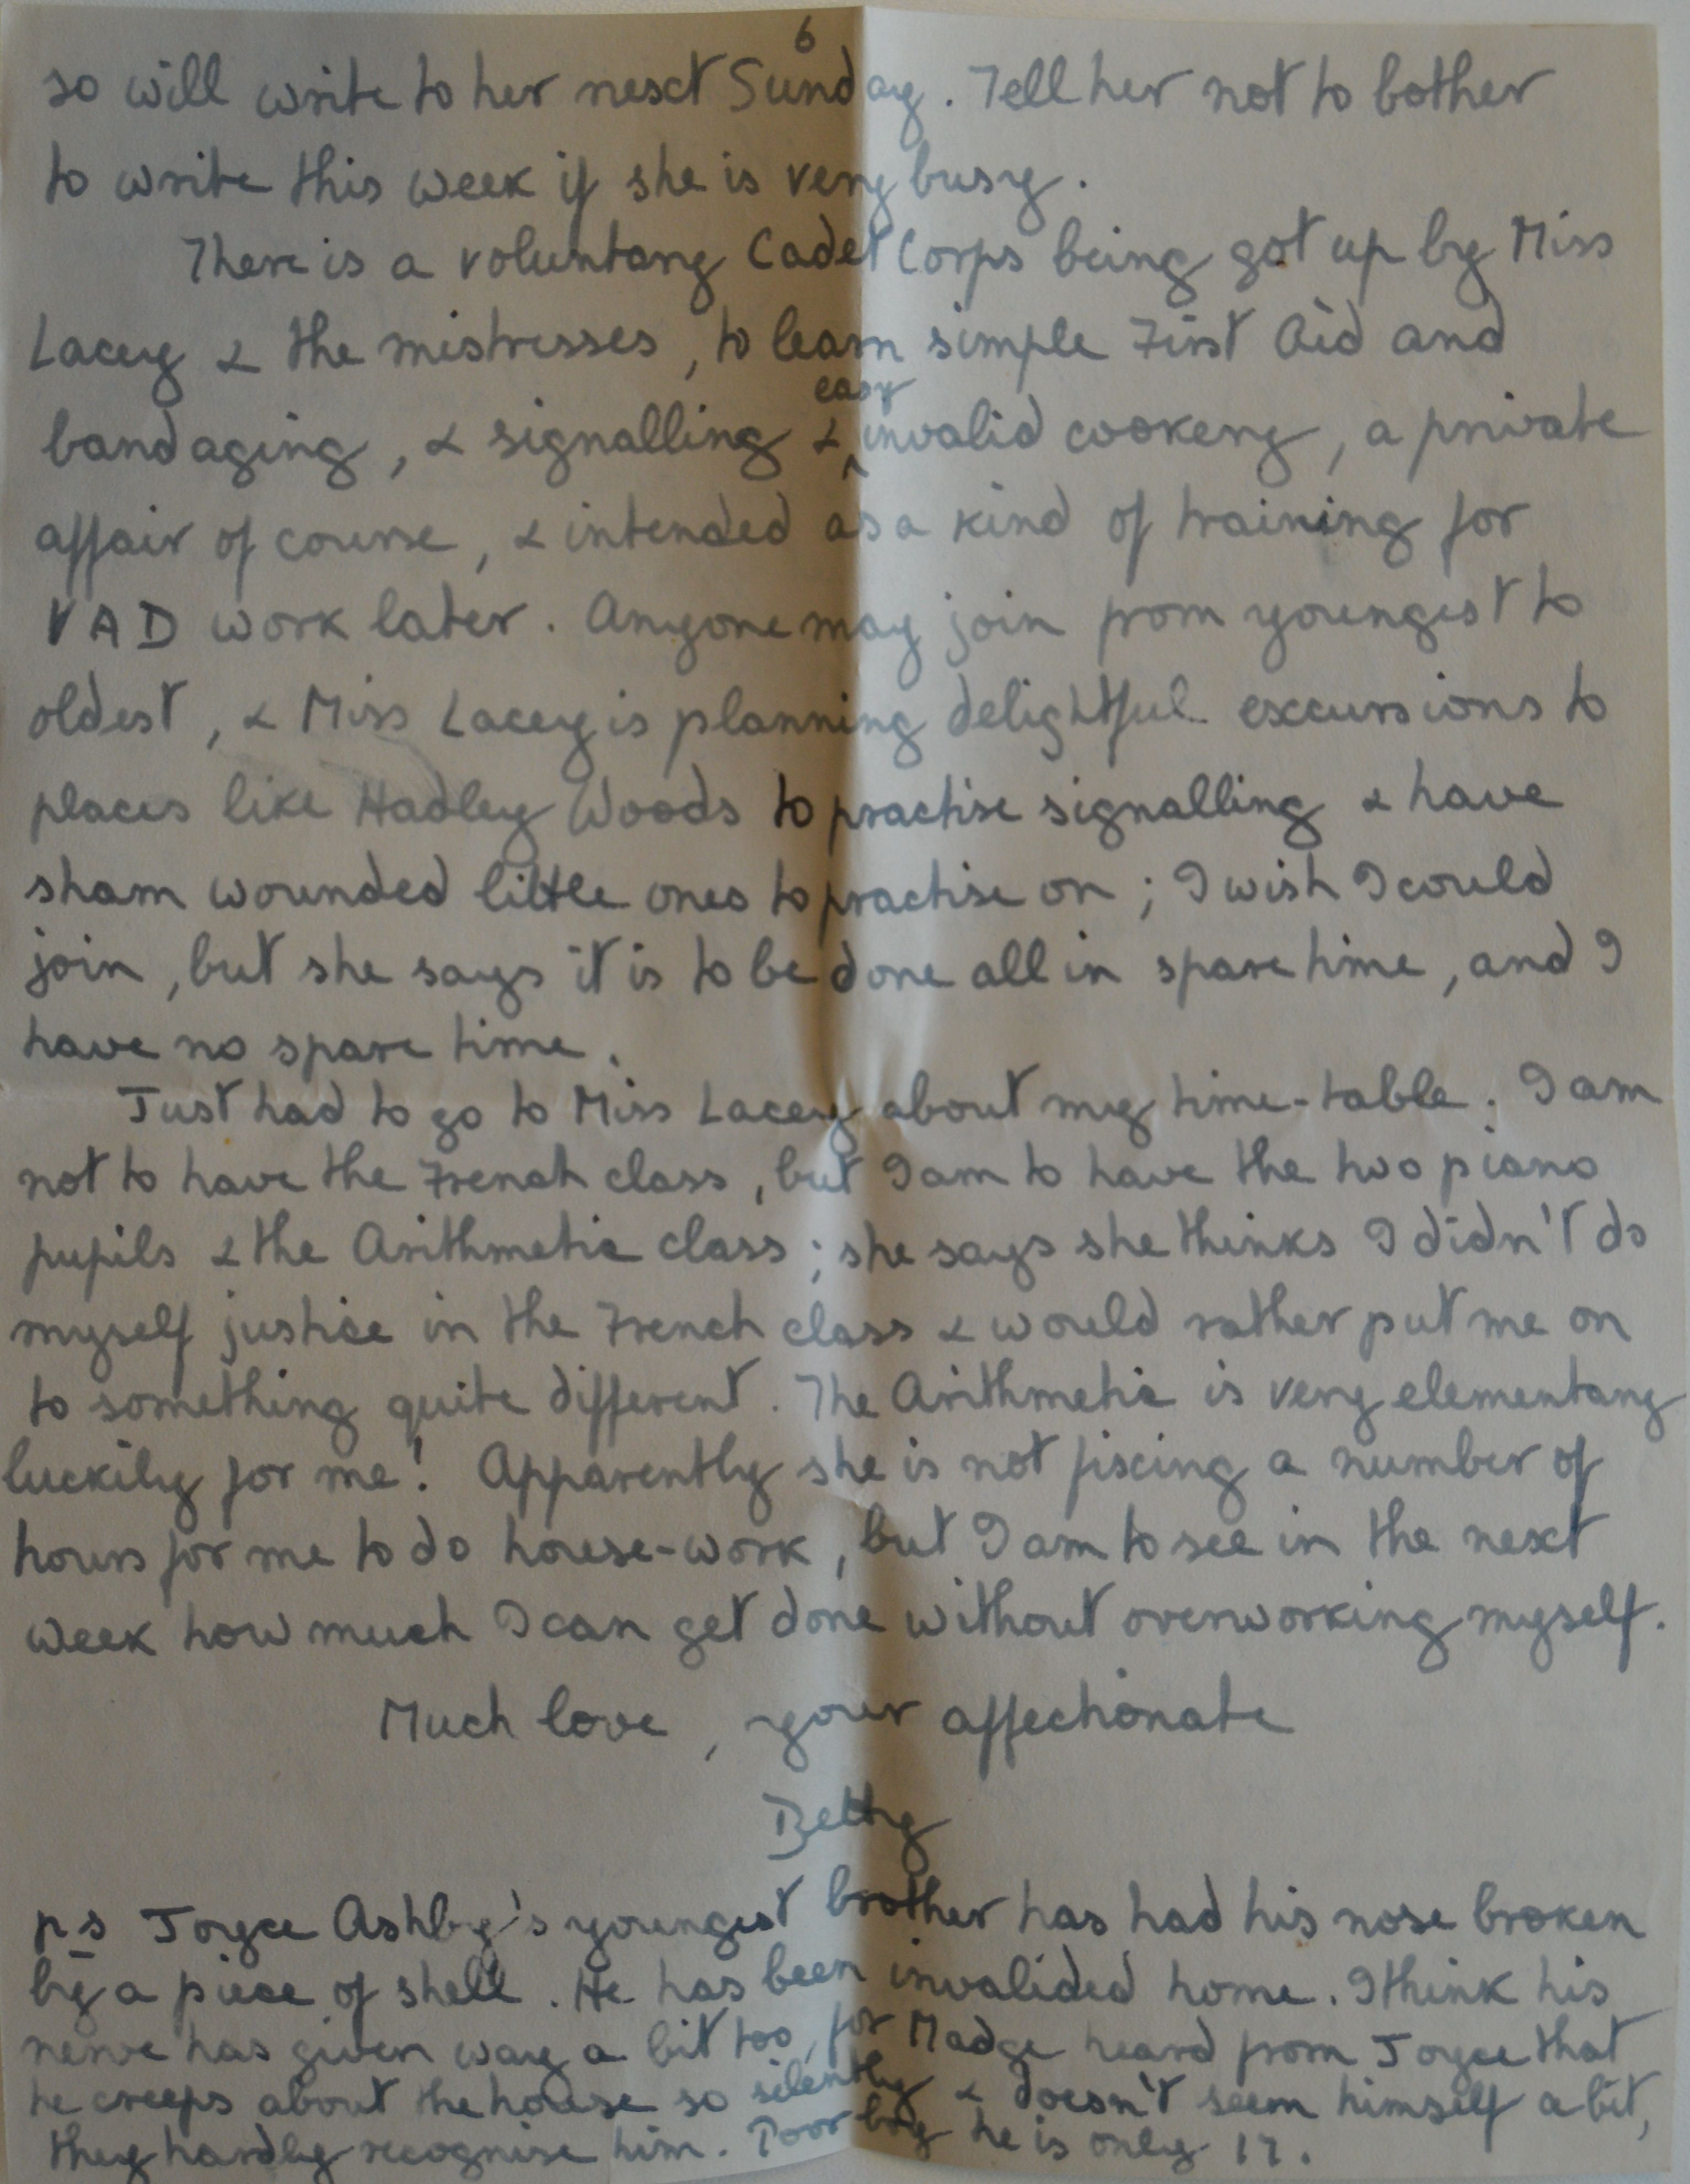 6
so will write to her next Sunday. Tell her not to bother
to write this week if she is very busy.
There is a voluntary Cadet Corps being got up by Miss
Lacey & the mistresses, to learn simple First Aid and
bandaging, & signalling & easy invalid cookery, a private
affair of course, & intended as a kind of training for
VAD work later. Anyone may join from youngest to
oldest, & Miss Lacey is planning delightful excursions to
places like Hadley Woods to practise signalling & have
sham wounded little ones to practise on; I wish I could
join, but she says it is to be done all in spare time, and I
have no spare time.
Just had to go to Miss Lacey about my time-table. I am
not to have the French class, but I am to have the two piano
pupils & the Arithmetic class; she says she thinks I didn't do
myself justice in the French class & would rather put me on
to something quite different. The Arithmetic is very elementary
luckily for me! Apparently she is not fixing a number of
hours for me to do house-work, but I am to see in the next
week how much I can get done without overworking myself.
Much love, your affectionate
Betty
ps Joyce Ashby's youngest brother has had his nose broken
by a piece of shell. He has been invalided home. I think his
nerve has given way a bit too, for Madge heard from Joyce that
he creeps about the house so silently & doesn't seem himself a bit,
they hardly recognise him. Poor boy he is only 17.